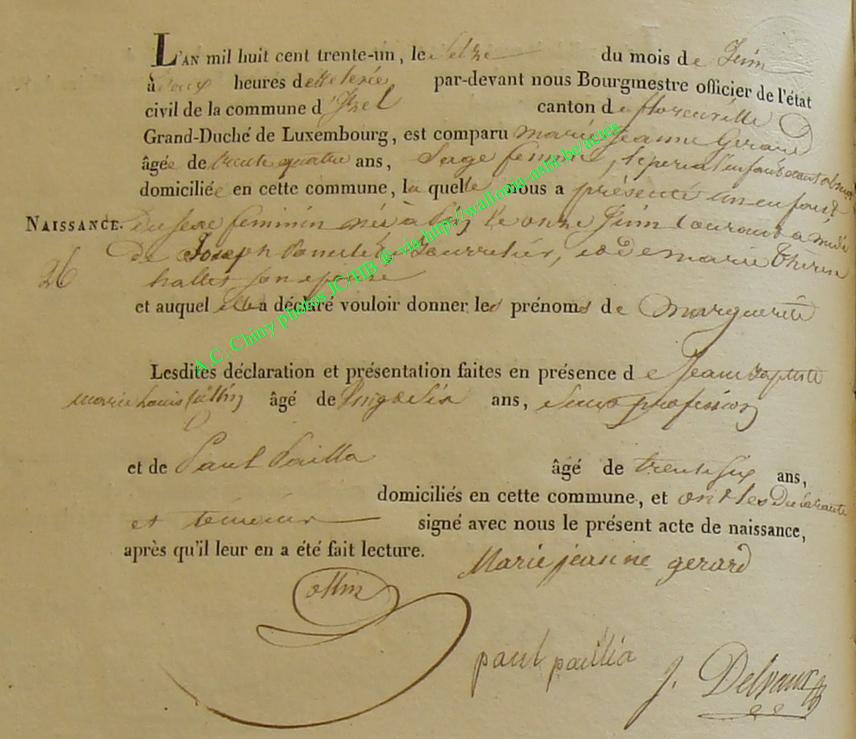 L'AN mil huit cent trente-un, le seize du mois de Juin
à heures de par-devant nous Bourgmestre officier de l'état
civil de la commune d'Izel canton de florenville
Grand-Duché de Luxembourg, est comparu marie Jeanne Gerard
âgée de trente quatre ans, Sage femme,
domiciliée en cette commune, la quelle nous a présenté un enfant
NAISSANCE. du sexe feminin née à le onze Juin courant a midi
26 de Joseph et de marie
halles son epouse
et auquel elle a déclaré vouloir donner les prénoms de Marguerite
Lesdites déclaration et présentation faites en présence de Jean Baptiste
marie Louis âgé de ans, Sans profession
et de Paul Pailla âgé de trente six ans,
domiciliés en cette commune, et ont les Declarante
et temoins signé avec nous le présent acte de naissance,
après qu'il leur en a été fait lecture.
Marie jeanne gerard
ottin
paul paillia
J. Delvaux
A.C. Chiny photos JC/HB @ via http://wallonia-asbl.be/actes